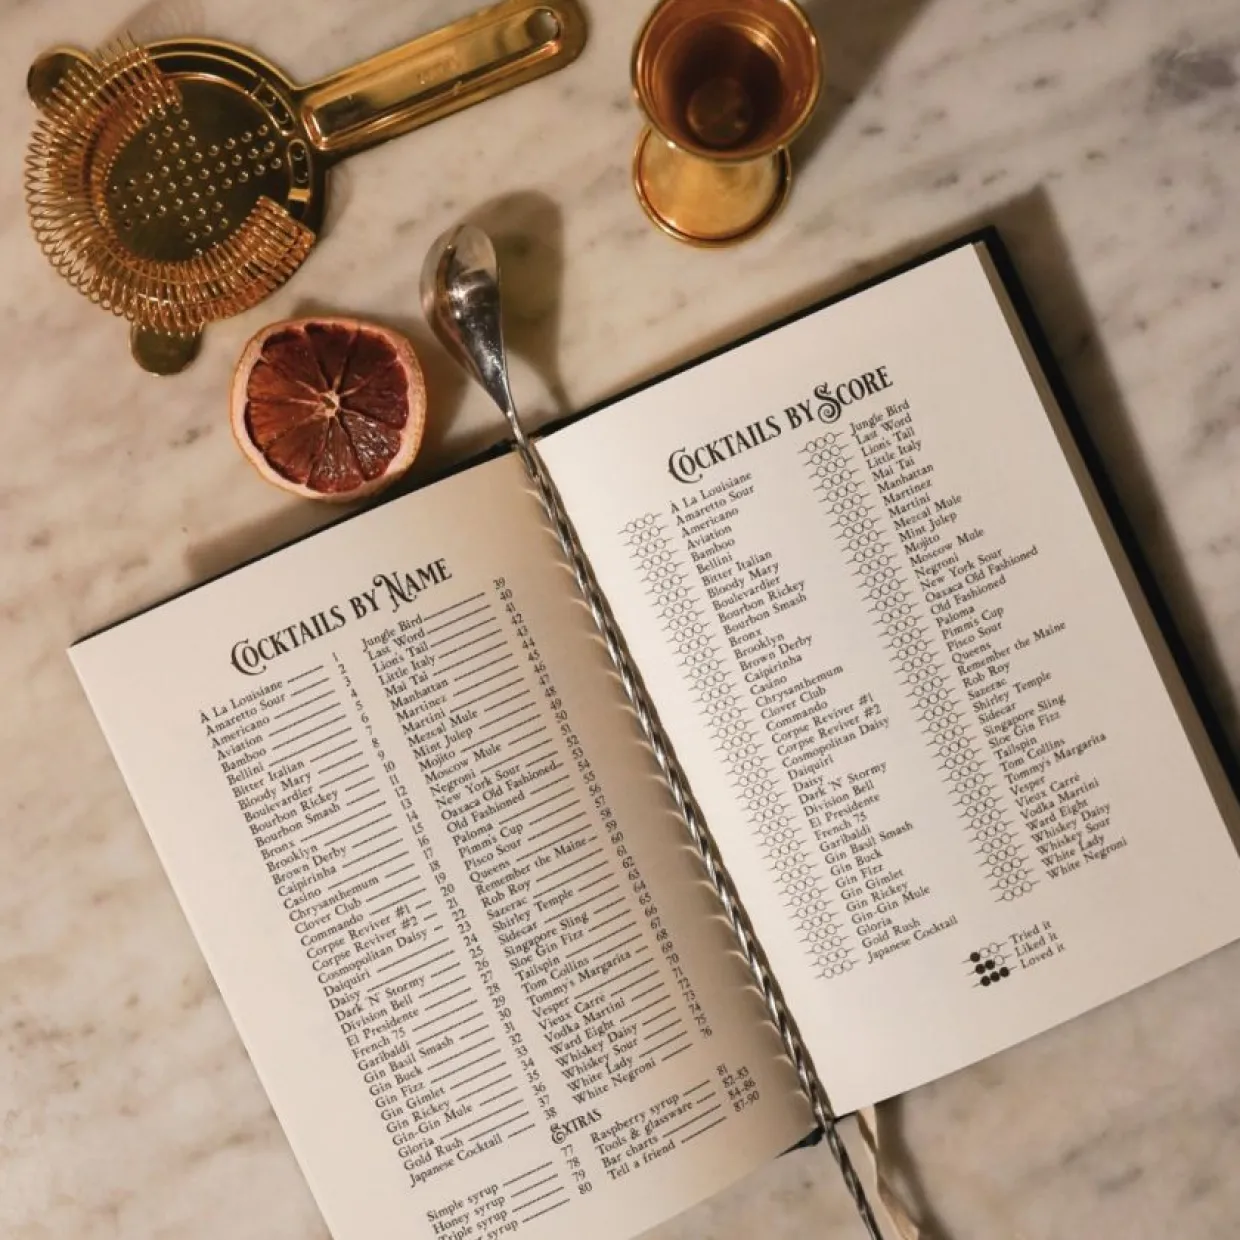 Cocktails by Name
À La Louisiane 1
Amaretto Sour 2
Americano 3
Aviation 4
Bamboo 5
Bellini 6
Bitter Italian 7
Bloody Mary 8
Boulevardier 9
Bourbon Rickey 10
Bourbon Smash 11
Bronx 12
Brooklyn 13
Brown Derby 14
Caipirinha 15
Casino 16
Chrysanthemum 17
Clover Club 18
Commando 19
Corpse Reviver #1 20
Corpse Reviver #2 21
Cosmopolitan Daisy 22
Daiquiri 23
Daisy 24
Dark 'N' Stormy 25
Division Bell 26
El Presidente 27
French 75 28
Garibaldi 29
Gin Basil Smash 30
Gin Buck 31
Gin Fizz 32
Gin Gimlet 33
Gin Rickey 34
Gin-Gin Mule 35
Gloria 36
Gold Rush 37
Japanese Cocktail 38
Jungle Bird 39
Last Word 40
Lion's Tail 41
Little Italy 42
Mai Tai 43
Manhattan 44
Martinez 45
Martini 46
Mezcal Mule 47
Mint Julep 48
Mojito 49
Moscow Mule 50
Negroni 51
New York Sour 52
Oaxaca Old Fashioned 53
Old Fashioned 54
Paloma 55
Pimm's Cup 56
Pisco Sour 57
Queens 58
Remember the Maine 59
Rob Roy 60
Sazerac 61
Shirley Temple 62
Sidecar 63
Singapore Sling 64
Sloe Gin Fizz 65
Tailspin 66
Tom Collins 67
Tommy's Margarita 68
Vesper 69
Vieux Carré 70
Vodka Martini 71
Ward Eight 72
Whiskey Daisy 73
Whiskey Sour 74
White Lady 75
White Negroni 76
Extras
Simple syrup 77
Honey syrup 78
Triple syrup 79
syrup 80
Raspberry syrup 81
Tools & glassware 82-83
Bar charts 84-86
Tell a friend 87-90
Cocktails by Score
À La Louisiane
Amaretto Sour
Americano
Aviation
Bamboo
Bellini
Bitter Italian
Bloody Mary
Boulevardier
Bourbon Rickey
Bourbon Smash
Bronx
Brooklyn
Brown Derby
Caipirinha
Casino
Chrysanthemum
Clover Club
Commando
Corpse Reviver #1
Corpse Reviver #2
Cosmopolitan Daisy
Daiquiri
Daisy
Dark 'N' Stormy
Division Bell
El Presidente
French 75
Garibaldi
Gin Basil Smash
Gin Buck
Gin Fizz
Gin Gimlet
Gin Rickey
Gin-Gin Mule
Gloria
Gold Rush
Japanese Cocktail
Jungle Bird
Last Word
Lion's Tail
Little Italy
Mai Tai
Manhattan
Martinez
Martini
Mezcal Mule
Mint Julep
Mojito
Moscow Mule
Negroni
New York Sour
Oaxaca Old Fashioned
Old Fashioned
Paloma
Pimm's Cup
Pisco Sour
Queens
Remember the Maine
Rob Roy
Sazerac
Shirley Temple
Sidecar
Singapore Sling
Sloe Gin Fizz
Tailspin
Tom Collins
Tommy's Margarita
Vesper
Vieux Carré
Vodka Martini
Ward Eight
Whiskey Daisy
Whiskey Sour
White Lady
White Negroni
Tried it
Liked it
Loved it